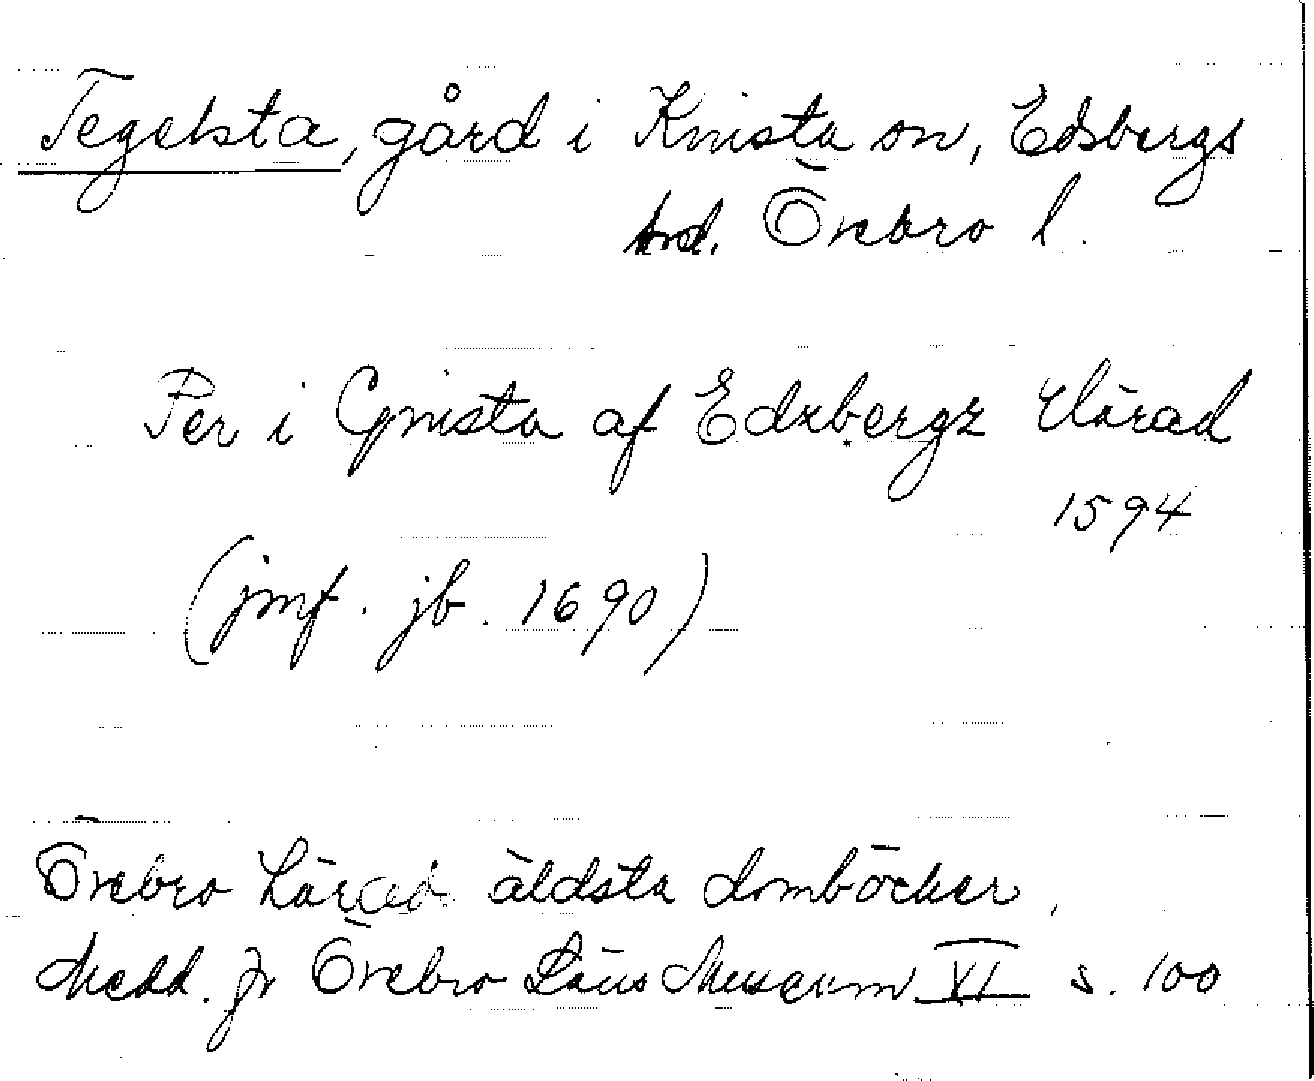 Tegelsta, gård i Knista sn, Edsbergs
hd. Örebro l.
Per i Gnista af Edxbergz Härad
1594
(jmf. jb. 1690)
Örebro Härads äldsta domböcker,
Medd. fr Örebro Läns Museum VI s. 100